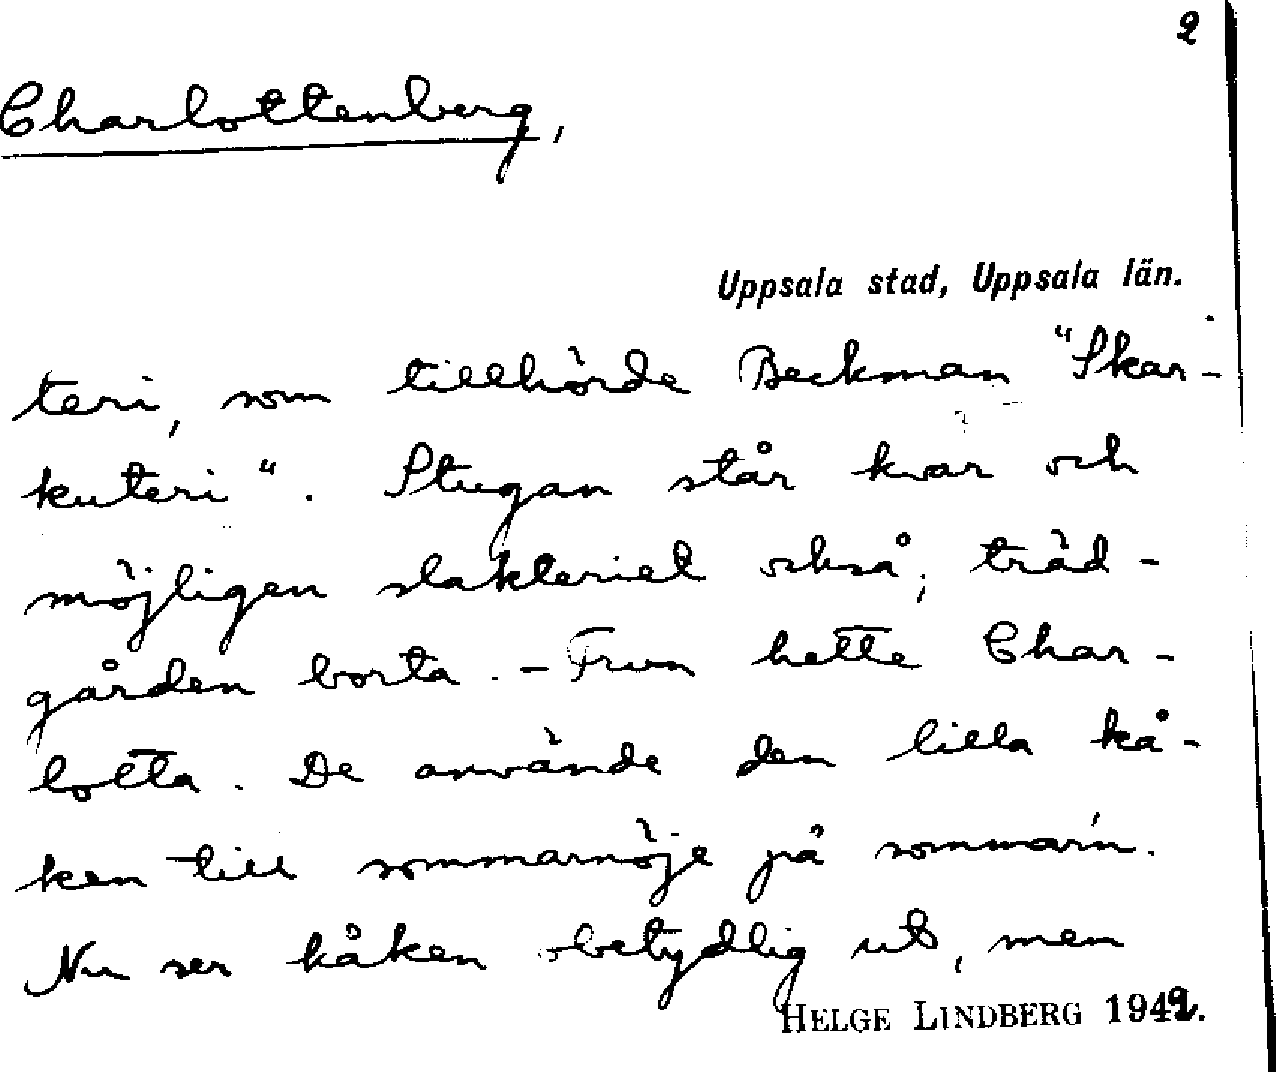 2
Charlottenberg,
Uppsala stad, Uppsala län.
teri, som tillhörde Beckman "Skar-
kuteri". Stugan står kvar och
möjligen slakteriet också; träd-
gården borta. - Frun hette Char-
lotta. De använde den lilla kå-
ken till sommarnöje på sommarn.
Nu ser kåken obetydlig ut, men
HELGE LINDBERG 1942.